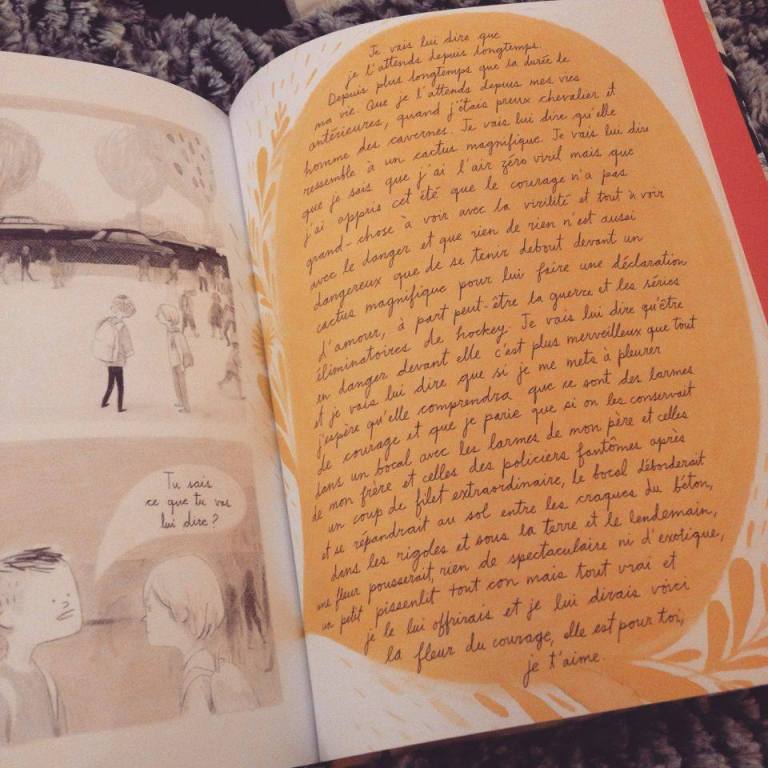 Tu sais
ce que tu vas
lui dire ?
Je vais lui dire que
je l'attends depuis longtemps.
Depuis plus longtemps que la durée de
ma vie. Que je l'attends depuis mes vies
antérieures, quand j'étais preux chevalier et
homme des cavernes. Je vais lui dire qu'elle
ressemble à un cactus magnifique. Je vais lui dire
que je sais que j'ai l'air zéro viril mais que
j'ai appris cet été que le courage n'a pas
grand-chose à voir avec la virilité et tout à voir
avec le danger et que rien de rien n'est aussi
dangereux que de se tenir debout devant un
cactus magnifique pour lui faire une déclaration
d'amour, à part peut-être la guerre et les séries
éliminatoires de hockey. Je vais lui dire qu'être
en danger devant elle c'est plus merveilleux que tout
et je vais lui dire que si je me mets à pleurer
j'espère qu'elle comprendra que ce sont des larmes
de courage et que je parie que si on les conservait
dans un bocal avec les larmes de mon père et celles
de mon frère et celles des policiers fantômes après
un coup de filet extraordinaire, le bocal déborderait
et se répandrait au sol entre les craques du béton,
dans les rigoles et sous la terre et le lendemain,
une fleur pousserait, rien de spectaculaire ni d'exotique,
un petit pissenlit tout con mais tout vrai et
je le lui offrirais et je lui dirais voici
la fleur du courage, elle est pour toi,
je t'aime.